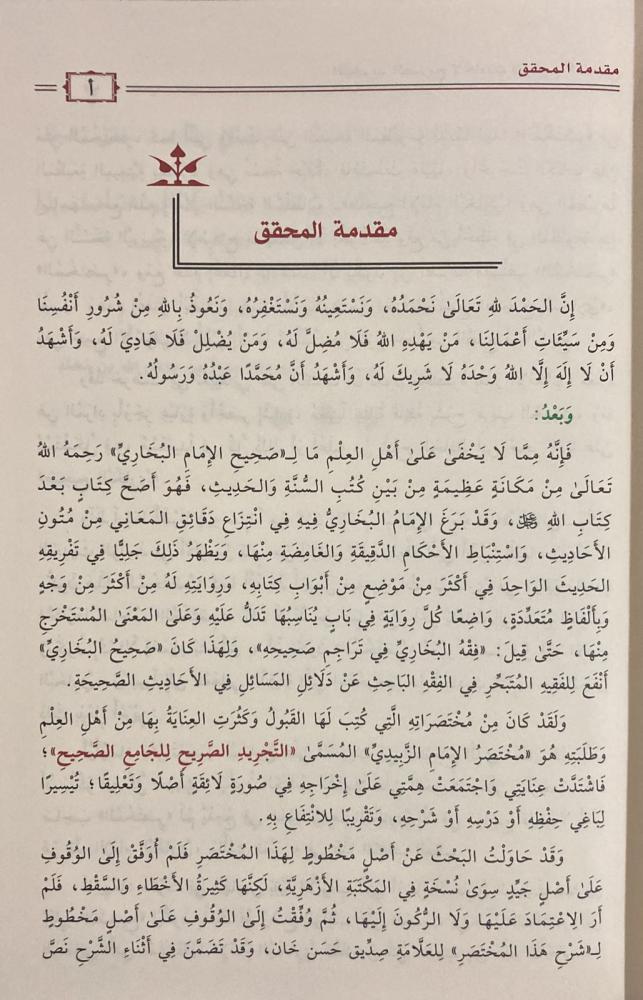 مقدمة المحقق
أ
مقدمة المحقق
إِنَّ الحَمْدَ للهِ تَعَالَىٰ نَحْمَدُهُ، وَنَسْتَعِينُهُ وَنَسْتَغْفِرُهُ، وَنَعُوذُ بِاللهِ مِنْ شُرُورِ أَنْفُسِنَا
وَمِنْ سَيِّئَاتِ أَعْمَالِنَا، مَنْ يَهْدِهِ اللهُ فَلَا مُضِلَّ لَهُ، وَمَنْ يُضْلِلْ فَلَا هَادِيَ لَهُ، وَأَشْهَدُ
أَنْ لَا إِلَهَ إِلَّا اللهُ وَحْدَهُ لَا شَرِيكَ لَهُ، وَأَشْهَدُ أَنَّ مُحَمَّدًا عَبْدُهُ وَرَسُولُهُ.
وَبَعْدُ:
فَإِنَّهُ مِمَّا لَا يَخْفَىٰ عَلَىٰ أَهْلِ العِلْمِ مَا لِـ«صَحِيحِ الإِمَامِ البُخَارِيِّ» رَحِمَهُ اللهُ
تَعَالَىٰ مِنْ مَكَانَةٍ عَظِيمَةٍ مِنْ بَيْنِ كُتُبِ السُّنَّةِ وَالحَدِيثِ، فَهُوَ أَصَحُّ كِتَابٍ بَعْدَ
كِتَابِ اللهِ ﷻ، وَقَدْ بَرَعَ الإِمَامُ البُخَارِيُّ فِيهِ فِي انْتِزَاعِ دَقَائِقِ المَعَانِي مِنْ مُتُونِ
الأَحَادِيثِ، وَاسْتِنْبَاطِ الأَحْكَامِ الدَّقِيقَةِ وَالغَامِضَةِ مِنْهَا، وَيَظْهَرُ ذَلِكَ جَلِيًّا فِي تَفْرِيقِهِ
الحَدِيثَ الوَاحِدَ فِي أَكْثَرَ مِنْ مَوْضِعٍ مِنْ أَبْوَابِ كِتَابِهِ، وَرِوَايَتِهِ لَهُ مِنْ أَكْثَرَ مِنْ وَجْهٍ
وَبِأَلْفَاظٍ مُتَعَدِّدَةٍ، وَاضِعًا كُلَّ رِوَايَةٍ فِي بَابٍ يُنَاسِبُهَا تَدَلُّ عَلَيْهِ وَعَلَىٰ المَعْنَىٰ المُسْتَخْرَجِ
مِنْهَا، حَتَّىٰ قِيلَ: «فِقْهُ البُخَارِيِّ فِي تَرَاجِمِ صَحِيحِهِ»، وَلِهَذَا كَانَ «صَحِيحُ البُخَارِيِّ»
أَنْفَعَ لِلفَقِيهِ المُتَبَحِّرِ فِي الفِقْهِ البَاحِثِ عَنْ دَلَائِلِ المَسَائِلِ فِي الأَحَادِيثِ الصَّحِيحَةِ.
وَلَقَدْ كَانَ مِنْ مُخْتَصَرَاتِهِ الَّتِي كُتِبَ لَهَا القَبُولُ وَكَثُرَتِ العِنَايَةُ بِهَا مِنْ أَهْلِ العِلْمِ
وَطَلَبَتِهِ هُوَ «مُخْتَصَرُ الإِمَامِ الزَّبِيدِيِّ» المُسَمَّىٰ «التَّجْرِيدِ الصَّرِيحِ لِلجَامِعِ الصَّحِيحِ»؛
فَاشْتَدَّتْ عِنَايَتِي وَاجْتَمَعَتْ هِمَّتِي عَلَىٰ إِخْرَاجِهِ فِي صُورَةٍ لَائِقَةٍ أَصْلًا وَتَعْلِيقًا؛ تَيْسِيرًا
لِبَاغِي حِفْظِهِ أَوْ دَرْسِهِ أَوْ شَرْحِهِ، وَتَقْرِيبًا لِلانْتِفَاعِ بِهِ.
وَقَدْ حَاوَلْتُ البَحْثَ عَنْ أَصْلٍ مَخْطُوطٍ لِهَذَا المُخْتَصَرِ فَلَمْ أُوَفَّقْ إِلَىٰ الوُقُوفِ
عَلَىٰ أَصْلٍ جَيِّدٍ سِوَىٰ نُسْخَةٍ فِي المَكْتَبَةِ الأَزْهَرِيَّةِ، لَكِنَّهَا كَثِيرَةُ الأَخْطَاءِ وَالسَّقْطِ، فَلَمْ
أَرَ الِاعْتِمَادَ عَلَيْهَا وَلَا الرُّكُونَ إِلَيْهَا، ثُمَّ وُفِّقْتُ إِلَىٰ الوُقُوفِ عَلَىٰ أَصْلٍ مَخْطُوطٍ
لِـ«شَرْحِ هَذَا المُخْتَصَرِ» لِلعَلَّامَةِ صِدِّيق حَسَن خَان، وَقَدْ تَضَمَّنَ فِي أَثْنَاءِ الشَّرْحِ نَصَّ